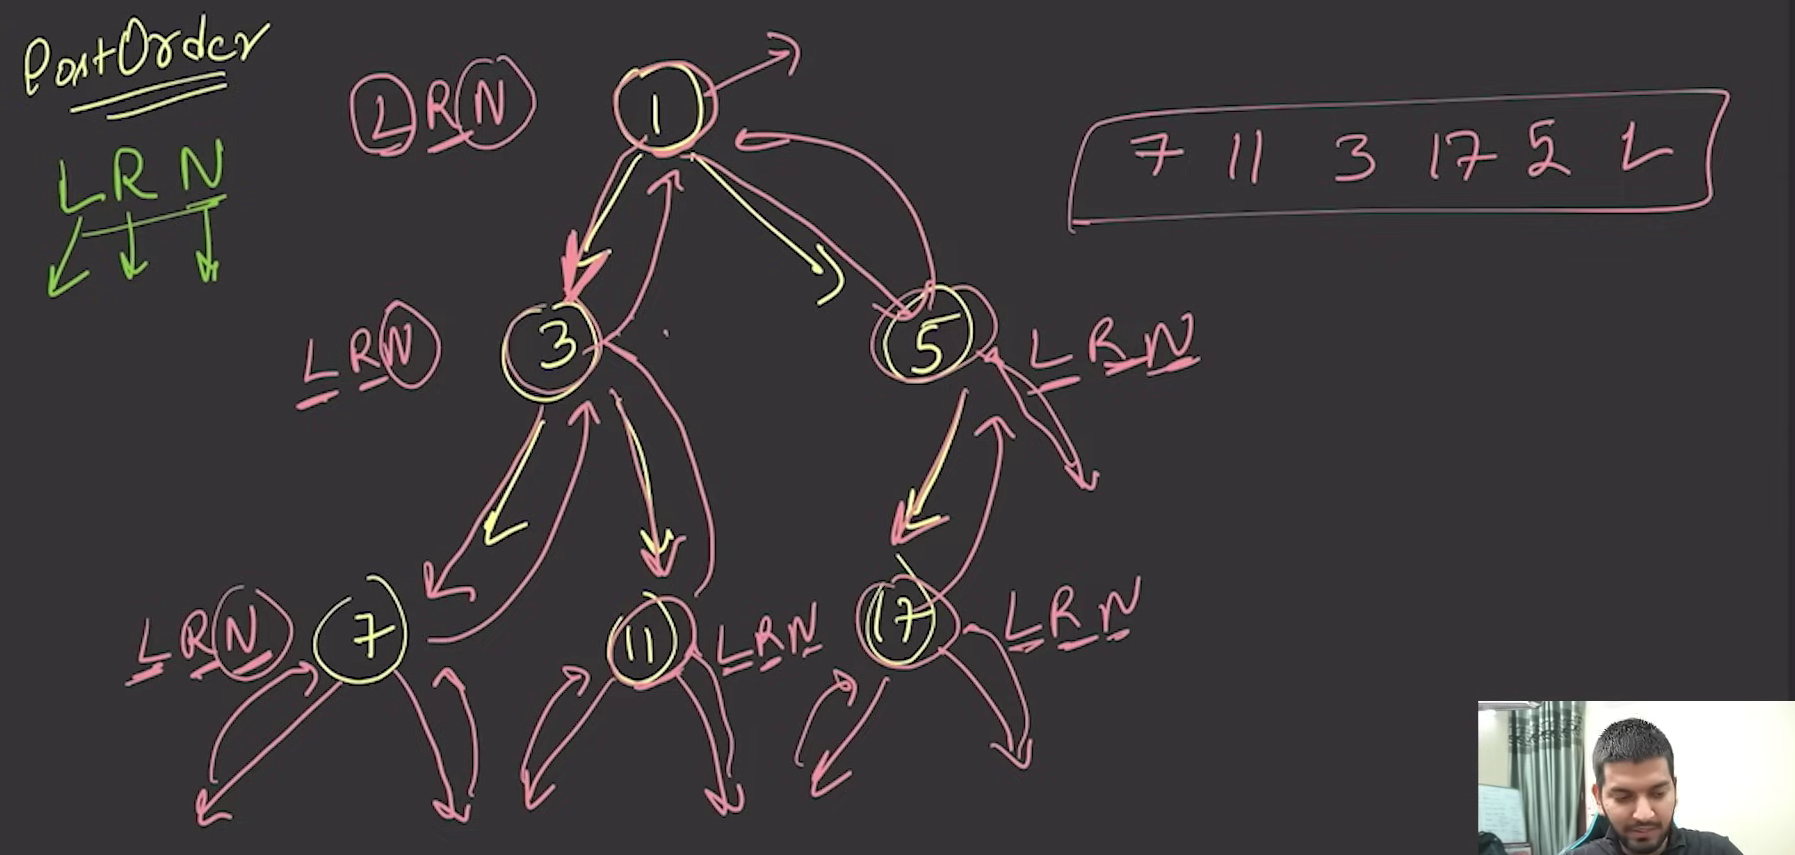 PostOrder
L R N
L R N
1
7 11 3 17 5 1
3
L R N
5
L R N
L R N
7
11
L R N
17
L R N